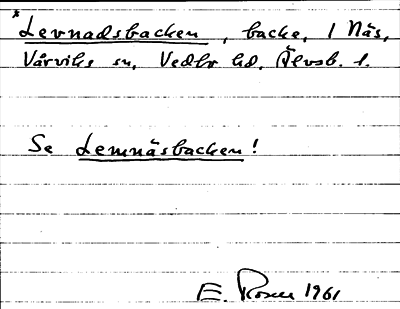 * Levnadsbacken, backe, 1 Näs,
Vårviks sn, Vedbo hd, Älvsb. l.
Se Lemnäsbacken!
E. Rosell 1961